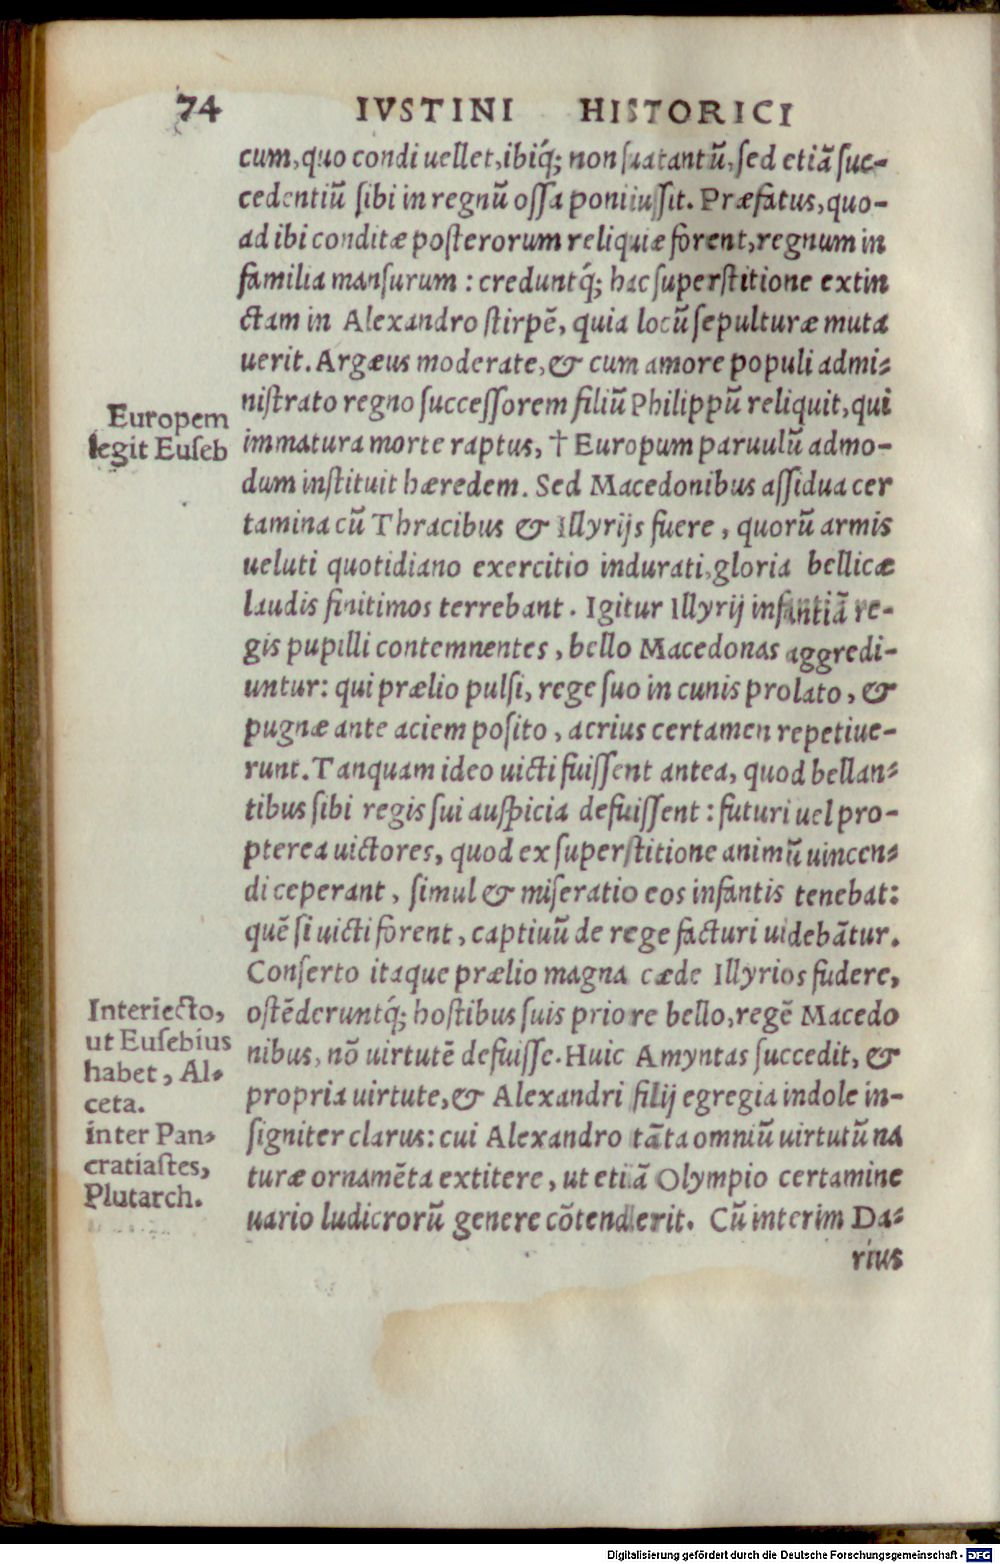 74 IVSTINI HISTORICI
cum, quo condi uellet, ibiq́; non sua tantũ, sed etiã suc-
cedentiũ sibi in regnũ ossa poni iussit. Præfatus, quo-
ad ibi conditæ posterorum reliquiæ forent, regnum in
familia mansurum : creduntq́; hac superstitione extin
ctam in Alexandro stirpẽ, quia locũ sepulturæ muta
uerit. Argæus moderate, & cum amore populi admi-
nistrato regno successorem filiũ Philippũ reliquit, qui
immatura morte raptus, † Europum paruulũ admo-
dum instituit hæredem. Sed Macedonibus assidua cer
tamina cũ Thracibus & Illyrijs fuere, quorũ armis
ueluti quotidiano exercitio indurati, gloria bellicæ
laudis finitimos terrebant. Igitur Illyrij infantiã re-
gis pupilli contemnentes, bello Macedonas aggredi-
untur: qui prælio pulsi, rege suo in cunis prolato, &
pugnæ ante aciem posito, acrius certamen repetiue-
runt. Tanquam ideo uicti fuissent antea, quod bellan-
tibus sibi regis sui auspicia defuissent : futuri uel pro-
pterea uictores, quod ex superstitione animũ uincen-
di ceperant, simul & miseratio eos infantis tenebat:
quẽ si uicti forent, captiuũ de rege facturi uidebãtur.
Conserto itaque prælio magna cæde Illyrios fudere,
ostẽderuntq́; hostibus suis priore bello, regẽ Macedo
nibus, nõ uirtutẽ defuisse. Huic Amyntas succedit, &
propria uirtute, & Alexandri filij egregia indole in-
signiter clarus: cui Alexandro tãta omniũ uirtutũ na
turæ ornamẽta extitere, ut etiã Olympio certamine
uario ludicrorũ genere cõtenderit. Cũ interim Da-
rius
Europem
legit Euseb
Interiecto,
ut Eusebius
habet, Al-
ceta.
inter Pan-
cratiastes,
Plutarch.
Digitalisierung gefördert durch die Deutsche Forschungsgemeinschaft - DFG